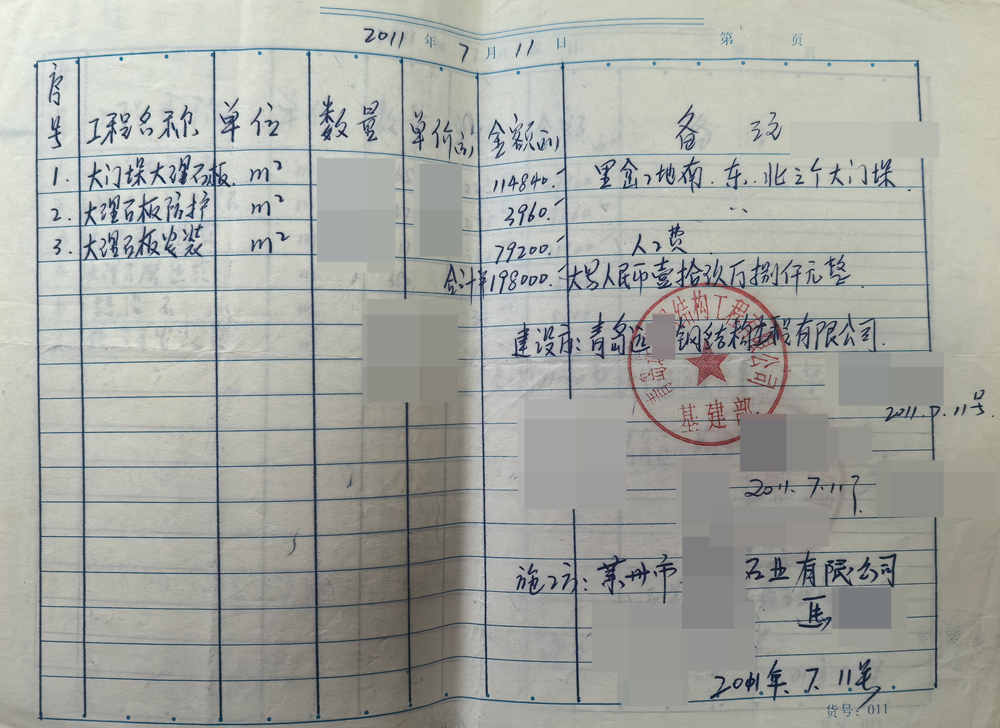 2011年7月11日 第 页
序号 工程名称 单位 数量 单价(元) 金额(元) 备注
1. 大门垛大理石板 m² 114840.- 里岔工地南.东.北三个大门垛
2. 大理石板防护 m² 3960.- 〃
3. 大理石板安装 m² 79200.- 人工费
合计¥198000.- 大写人民币壹拾玖万捌仟元整.
建设方:青岛远 钢结构工程有限公司.
结构工程 公司
青岛
基建部
2011.7.11号
2011.7.11号
施工方:莱州市 石业有限公司
马
2011年.7.11号
货号:011